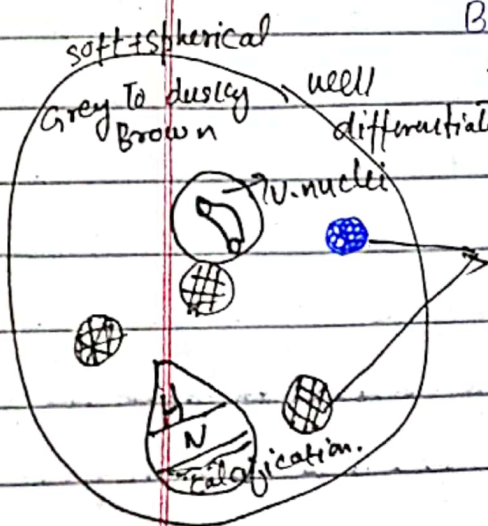 B
soft + spherical
Grey To dusky
Brown
well
differential
V.nuclei
L
N
calcification.